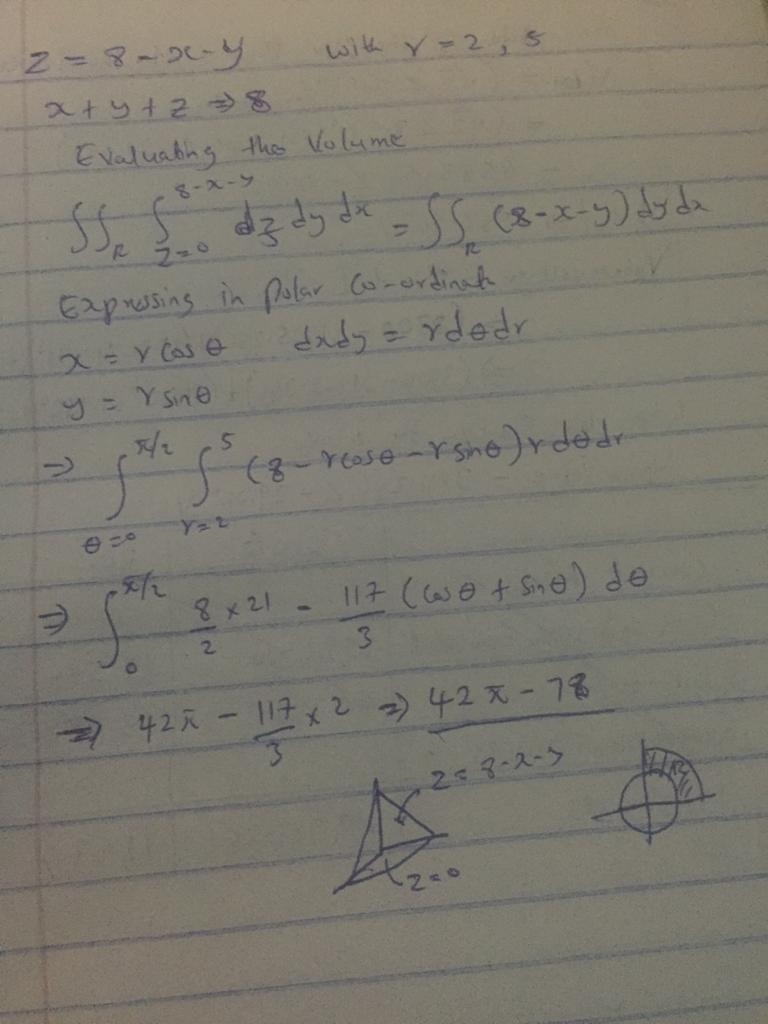 z = 8 - x - y with r = 2, 5
x + y + z ⇒ 8
Evaluating the Volume
∬_R ∫_{z=0}^{8-x-y} dz dy dx = ∬_R (8-x-y) dy dx
Expressing in Polar Co-ordinate
x = r cos θ dxdy = r dθ dr
y = r sin θ
⇒ ∫_{θ=0}^{π/2} ∫_{r=2}^{5} (8 - r cos θ - r sin θ) r dθ dr
⇒ ∫_0^{π/2} 8/2 × 21 - 117/3 (cos θ + sin θ) dθ
⇒ 42π - 117/3 × 2 ⇒ 42π - 78
z = 8-x-y
R
z=0